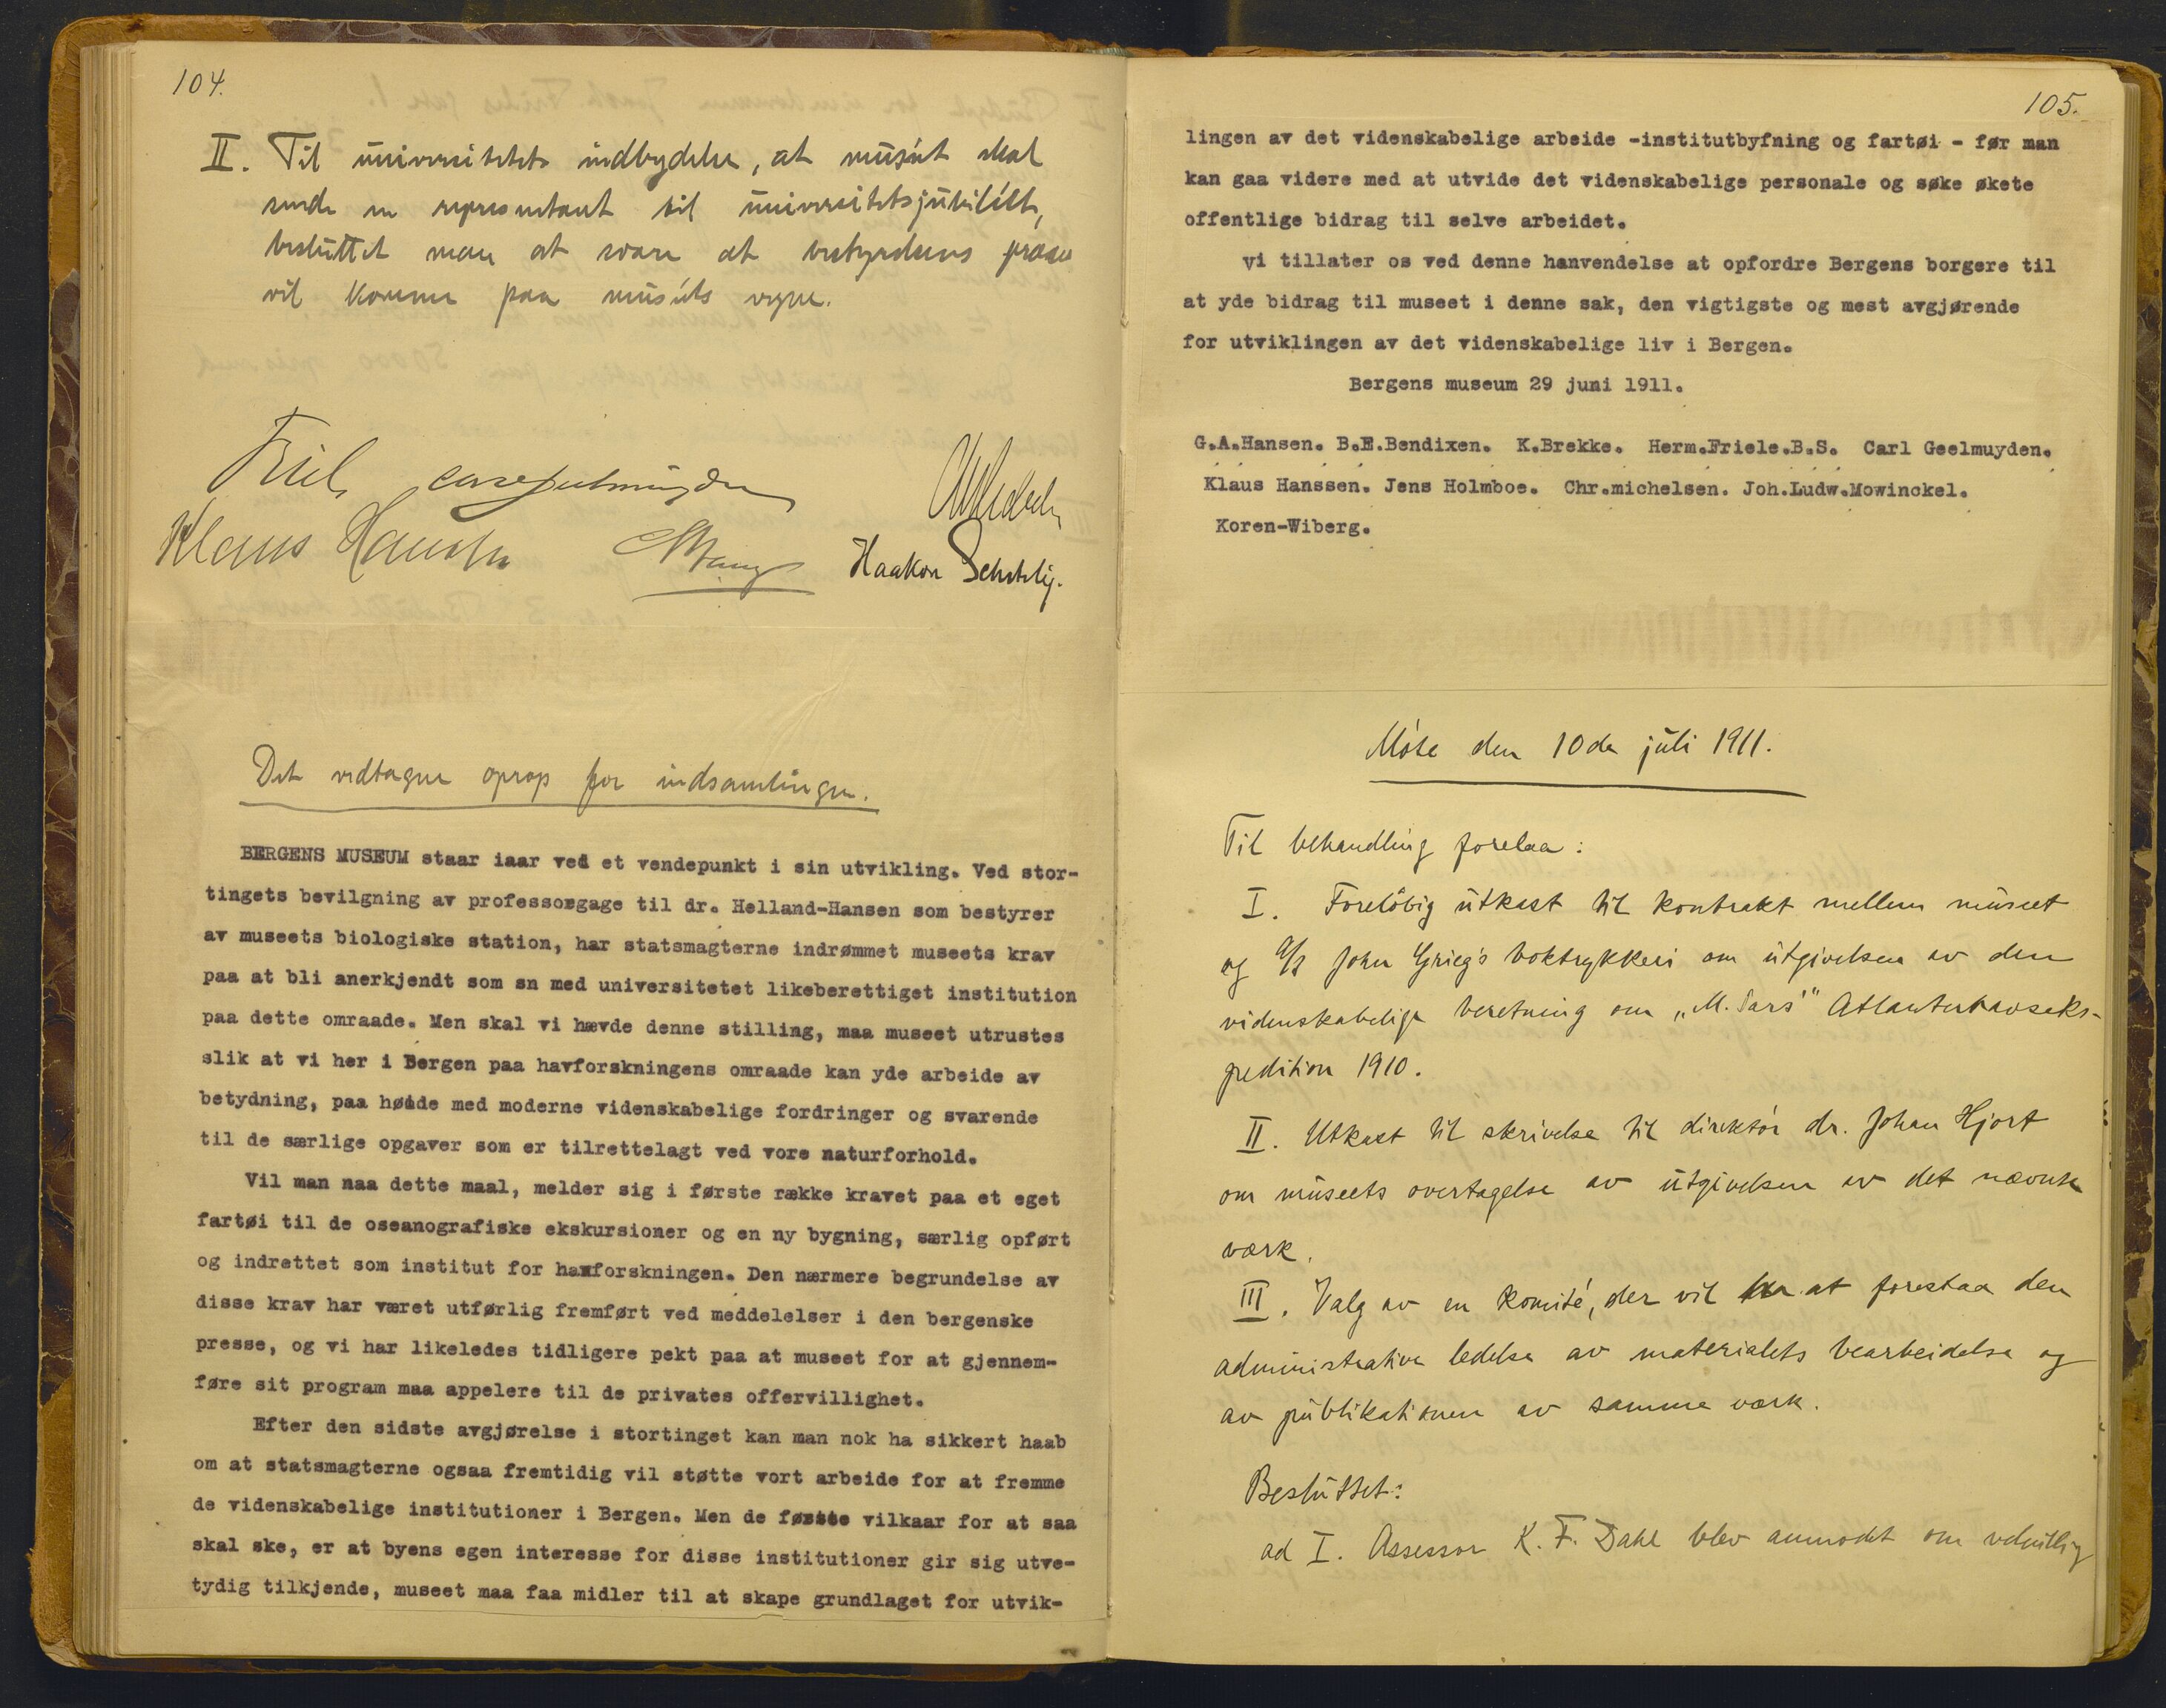 104.
II. Til universitetets indbydelse, at museet skal
sende en representant til universitetsjubilæet,
besluttet man at svare at bestyrelsens præses
vil komme paa museets vegne.
Friele Carl Geelmuyden
Klaus Hanssen Haakon Schetelig.
Det vedtagne oprop for indsamlingen.
BERGENS MUSEUM staar iaar ved et vendepunkt i sin utvikling. Ved stor-
tingets bevilgning av professorgage til dr. Helland-Hansen som bestyrer
av museets biologiske station, har statsmagterne indrømmet museets krav
paa at bli anerkjendt som sn med universitetet likeberettiget institution
paa dette omraade. Men skal vi hævde denne stilling, maa museet utrustes
slik at vi her i Bergen paa havforskningens omraade kan yde arbeide av
betydning, paa høide med moderne videnskabelige fordringer og svarende
til de særlige opgaver som er tilrettelagt ved vore naturforhold.
Vil man naa dette maal, melder sig i første række kravet paa et eget
fartøi til de oseanografiske ekskursioner og en ny bygning, særlig opført
og indrettet som institut for havforskningen. Den nærmere begrundelse av
disse krav har været utførlig fremført ved meddelelser i den bergenske
presse, og vi har likeledes tidligere pekt paa at museet for at gjennem-
føre sit program maa appelere til de privates offervillighet.
Efter den sidste avgjørelse i stortinget kan man nok ha sikkert haab
om at statsmagterne ogsaa fremtidig vil støtte vort arbeide for at fremme
de videnskabelige institutioner i Bergen. Men de første vilkaar for at saa
skal ske, er at byens egen interesse for disse institutioner gir sig utve-
tydig tilkjende, museet maa faa midler til at skape grundlaget for utvik-
105.
lingen av det videnskabelige arbeide -institutbyfning og fartøi - før man
kan gaa videre med at utvide det videnskabelige personale og søke økete
offentlige bidrag til selve arbeidet.
Vi tillater os ved denne hanvendelse at opfordre Bergens borgere til
at yde bidrag til museet i denne sak, den vigtigste og mest avgjørende
for utviklingen av det videnskabelige liv i Bergen.
Bergens museum 29 juni 1911.
G.A.Hansen. B.E.Bendixen. K.Brekke. Herm.Friele.B.S. Carl Geelmuyden.
Klaus Hanssen. Jens Holmboe. Chr.michelsen. Joh.Ludw.Mowinckel.
Koren-Wiberg.
Møte den 10de juli 1911.
Til behandling forelaa:
I. Foreløbig utkast til kontrakt mellem museet
og A/S John Grieg's boktrykkeri om utgivelsen av den
videnskabelige beretning om „M. Sars" Atlanterhavseks-
pedition 1910.
II. Utkast til skrivelse til direktør dr. Johan Hjort
om museets overtagelse av utgivelsen av det nævnte
verk.
III. Valg av en komité, der vil at forestaa den
administrative ledelse av materialets bearbeidelse og
av publikationen av samme verk.
Besluttet:
ad I. Assessor K. F. Dahl blev anmodet om velvillig